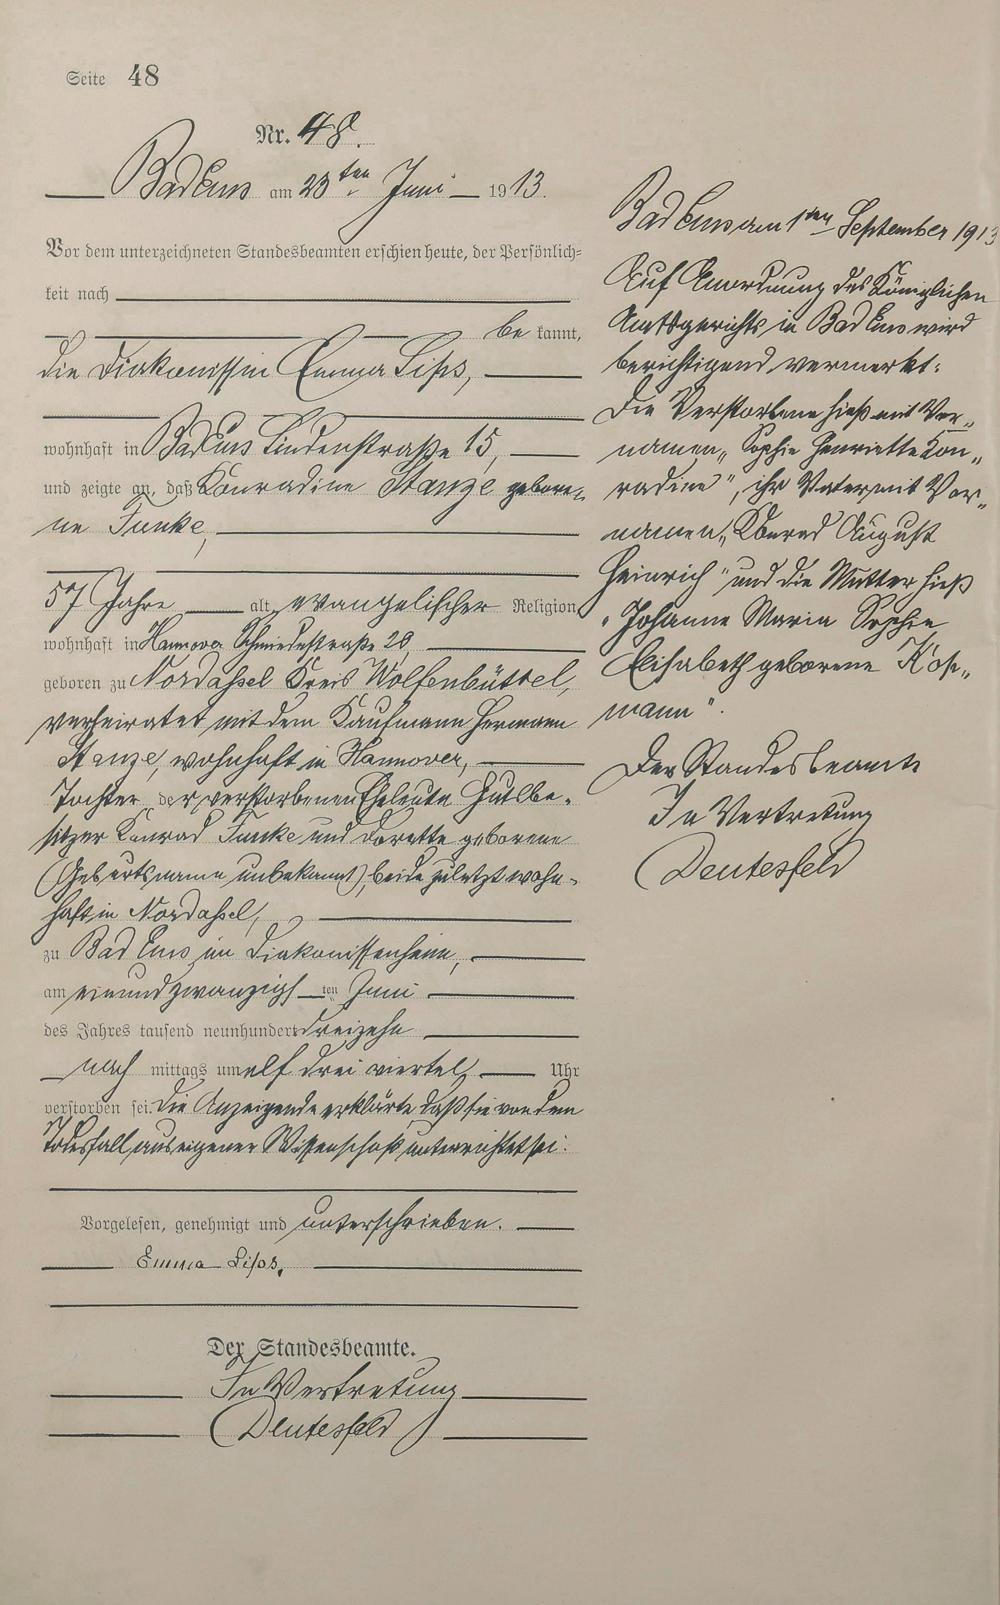 Seite 48
Nr. 48.
Bad Ems am 23ten Juni 1913.
Vor dem unterzeichneten Standesbeamten erschien heute, der Persönlich-
keit nach
be kannt,
die Diakonissin Emma Lips,
wohnhaft in Bad Ems Lindenstraße 15,
und zeigte an, daß Konradine Stanze gebore-
ne Funke,
57 Jahre alt, evangelischer Religion
wohnhaft in Hannover Schmiedestraße 20,
geboren zu Nordassel Kreis Wolfenbüttel,
verheiratet mit dem Kaufmann Hermann
Stanze, wohnhaft in Hannover,
Tochter der verstorbenen Eheleute Gutsbe-
sitzer Konrad Funke und Dorette geborene
(Geburtsname unbekannt), beide zuletzt wohn-
haft in Nordassel,
zu Bad Ems im Diakonissenheim,
am einundzwanzigsten Juni
des Jahres tausend neunhundert dreizehn
nach mittags um elf drei viertel Uhr
verstorben sei. Die Anzeigende erklärte, daß sie von dem
Todesfall aus eigener Wissenschaft unterrichtet sei.
Vorgelesen, genehmigt und unterschrieben.
Emma Lips.
Der Standesbeamte.
In Vertretung
Deutesfeld
Bad Ems am 1ten September 1913
Auf Anordnung des Königlichen
Amtsgerichts in Bad Ems wird
berichtigend vermerkt:
Die Verstorbene hieß mit Vor-
namen „Sophie Henriette Kon-
radine", ihr Vater mit Vor-
namen „Konrad August
Heinrich" und die Mutter hieß
„Johanne Maria Sophie
Elisabeth geborene
mann".
Der Standesbeamte
In Vertretung
Deutesfeld